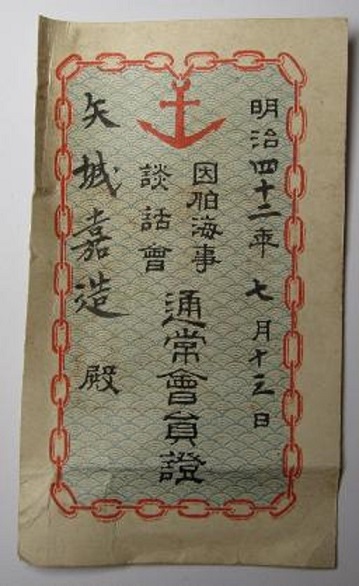 明治四十二年七月十三日
因伯海事
談話會
通常會員證
矢城嘉造殿